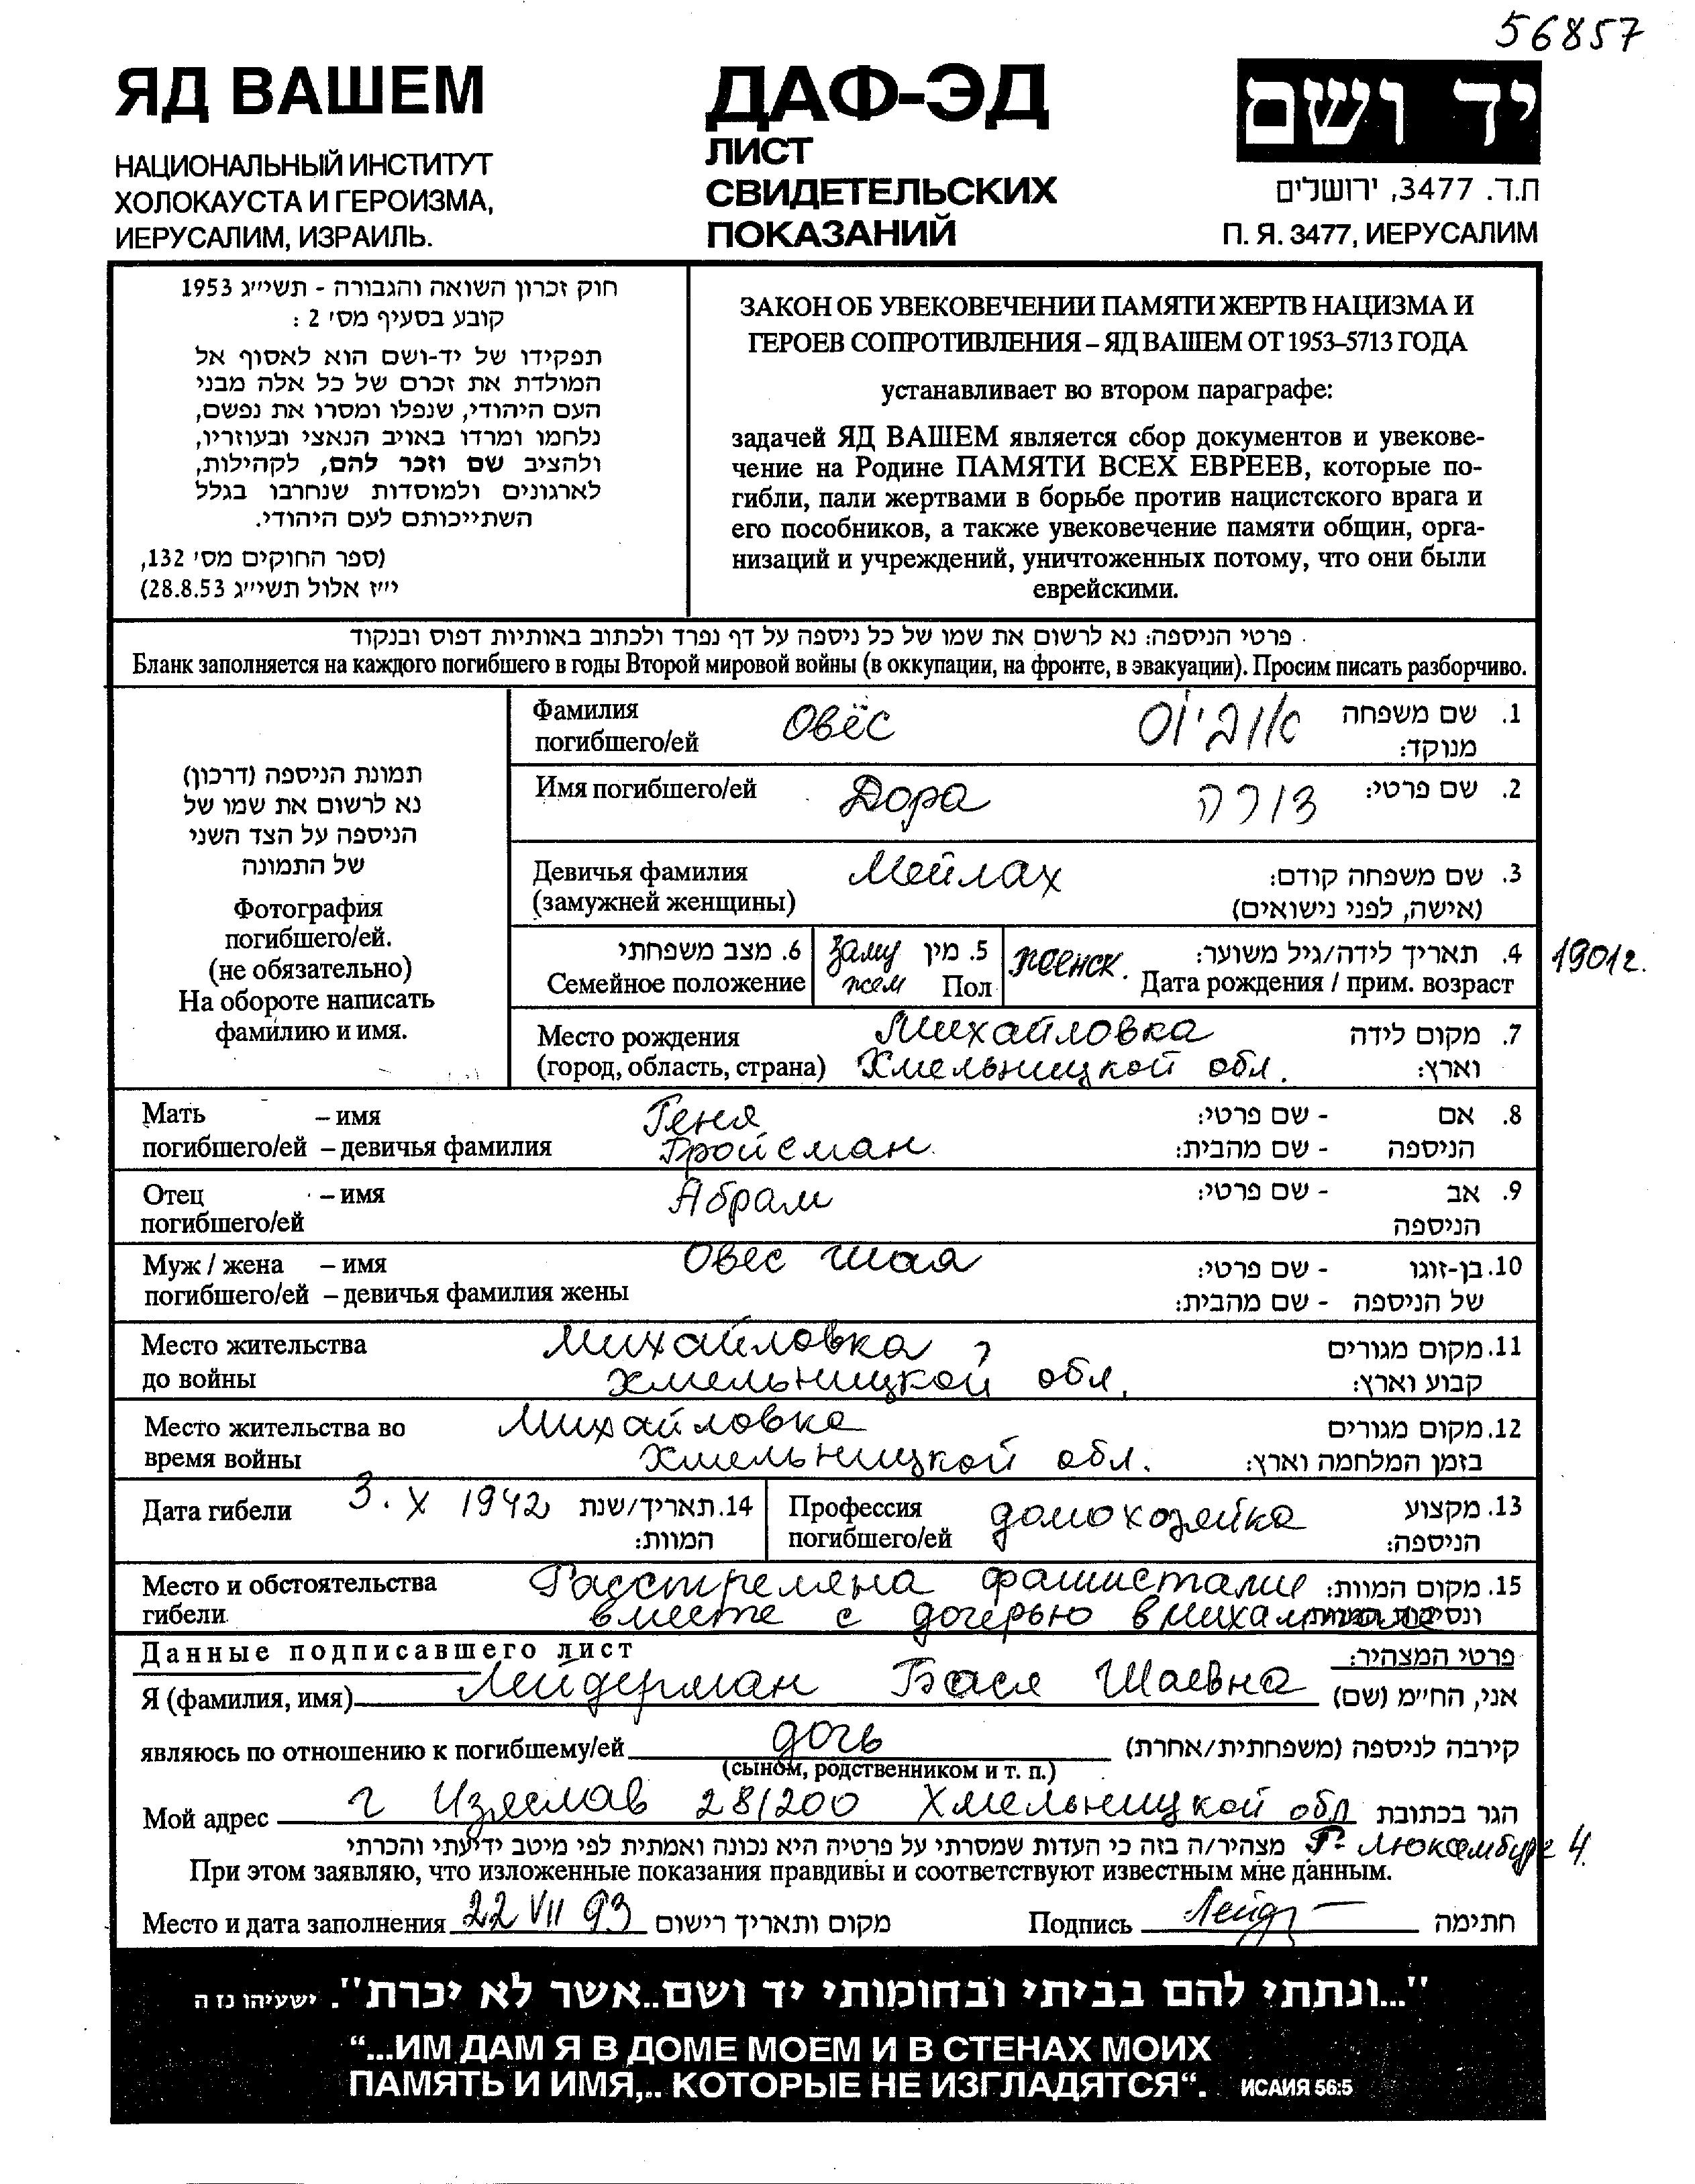 56857
ЯД ВАШЕМ
НАЦИОНАЛЬНЫЙ ИНСТИТУТ
ХОЛОКАУСТА И ГЕРОИЗМА,
ИЕРУСАЛИМ, ИЗРАИЛЬ.
ДАФ-ЭД
ЛИСТ
СВИДЕТЕЛЬСКИХ
ПОКАЗАНИЙ
יד ושם
ת.ד. 3477, ירושלים
П. Я. 3477, ИЕРУСАЛИМ
חוק זכרון השואה והגבורה - תשי״ג 1953
קובע בסעיף מס׳ 2 :
תפקידו של יד-ושם הוא לאסוף אל
המולדת את זכרם של כל אלה מבני
העם היהודי, שנפלו ומסרו את נפשם,
נלחמו ומרדו באויב הנאצי ובעוזריו,
ולהציב שם וזכר להם, לקהילות,
לארגונים ולמוסדות שנחרבו בגלל
השתייכותם לעם היהודי.
(ספר החוקים מס׳ 132,
י״ז אלול תשי״ג 28.8.53)
ЗАКОН ОБ УВЕКОВЕЧЕНИИ ПАМЯТИ ЖЕРТВ НАЦИЗМА И
ГЕРОЕВ СОПРОТИВЛЕНИЯ – ЯД ВАШЕМ ОТ 1953–5713 ГОДА
устанавливает во втором параграфе:
задачей ЯД ВАШЕМ является сбор документов и увекове-
чение на Родине ПАМЯТИ ВСЕХ ЕВРЕЕВ, которые по-
гибли, пали жертвами в борьбе против нацистского врага и
его пособников, а также увековечение памяти общин, орга-
низаций и учреждений, уничтоженных потому, что они были
еврейскими.
פרטי הניספה: נא לרשום את שמו של כל ניספה על דף נפרד ולכתוב באותיות דפוס ובנקוד
Бланк заполняется на каждого погибшего в годы Второй мировой войны (в оккупации, на фронте, в эвакуации). Просим писать разборчиво.
תמונת הניספה (דרכון)
נא לרשום את שמו של
הניספה על הצד השני
של התמונה
Фотография
погибшего/ей.
(не обязательно)
На обороте написать
фамилию и имя.
Фамилия Овёс אוביוס 1. שם משפחה
погибшего/ей מנוקד:
Имя погибшего/ей Дора דורה 2. שם פרטי:
Девичья фамилия Мейлах 3. שם משפחה קודם:
(замужней женщины) (אישה, לפני נישואים)
6. מצב משפחתי заму 5. מין женск. 4. תאריך לידה/גיל משוער: 1901г.
Семейное положение жем Пол Дата рождения / прим. возраст
Место рождения Михайловка 7. מקום לידה
(город, область, страна) Хмельницкой обл. וארץ:
Мать – имя Геня 8. אם - שם פרטי:
погибшего/ей – девичья фамилия Гройсман הניספה - שם מהבית:
Отец – имя Абрам 9. אב - שם פרטי:
погибшего/ей הניספה
Муж / жена – имя Овес Шая 10. בן-זוגו - שם פרטי:
погибшего/ей – девичья фамилия жены של הניספה - שם מהבית:
Место жительства Михайловка, 11. מקום מגורים
до войны Хмельницкой обл. קבוע וארץ:
Место жительства во Михайловка 12. מקום מגורים
время войны Хмельницкой обл. בזמן המלחמה וארץ:
Дата гибели 3. X 1942 14. תאריך/שנת Профессия домохозяйка 13. מקצוע
המוות: погибшего/ей הניספה:
Место и обстоятельства Расстреляна фашистами 15. מקום המוות:
гибели вместе с дочерью в
Данные подписавшего лист פרטי המצהיר:
Я (фамилия, имя) Лейдерман Бася Шаевна אני, החי״מ (שם)
являюсь по отношению к погибшему/ей дочь קירבה לניספה (משפחתית/אחרת)
(сыном, родственником и т. п.)
Мой адрес г Изяслав 28/200 Хмельницкой обл הגר בכתובת
מצהיר/ה בזה כי העדות שמסרתי על פרטיה היא נכונה ואמתית לפי מיטב ידיעתי והכרתי
При этом заявляю, что изложенные показания правдивы и соответствуют известным мне данным.
Место и дата заполнения 22 VII 93 מקום ותאריך רישום Подпись חתימה
"...ונתתי להם בביתי ובחומותי יד ושם..אשר לא יכרת". ישעיהו נז ה
“...ИМ ДАМ Я В ДОМЕ МОЕМ И В СТЕНАХ МОИХ
ПАМЯТЬ И ИМЯ,.. КОТОРЫЕ НЕ ИЗГЛАДЯТСЯ“. ИСАИЯ 56:5